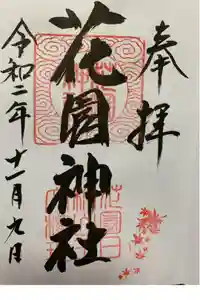 奉拝
花園神社
令和二年十一月九日